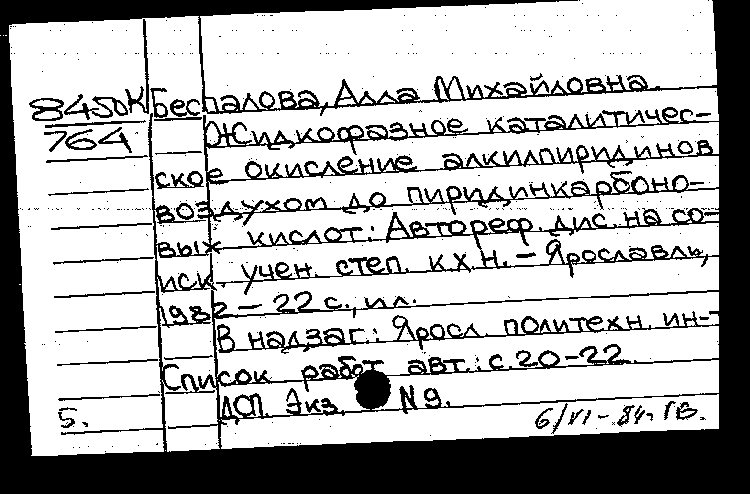 8450К Беспалова, Алла Михайловна.
764 Жидкофазное каталитичес-
ское окисление алкилпиридинов
воздухом до пиридинкарбоно-
вых кислот: Автореф. дис. на со-
иск. учен. степ. к.х.н. – Ярославль,
1982 – 22 с., ил.
В надзаг.: Яросл. политехн. ин-т
Список работ авт.: с. 20-22.
5. ДСП. Экз. N 9.
6/VI - 84. ГВ.